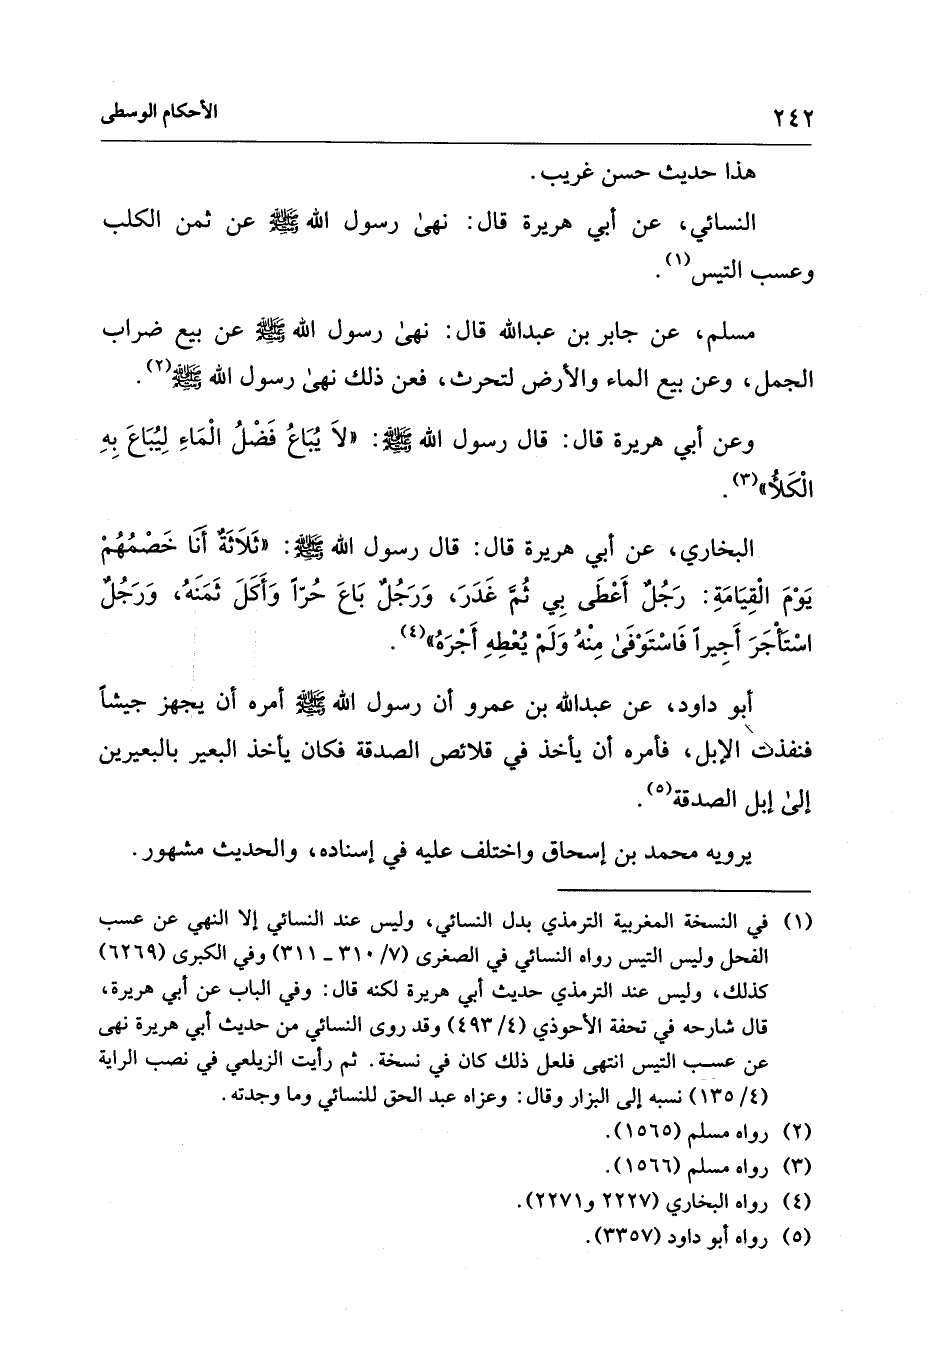 ٢٤٢ الأحكام الوسطى
هذا حديث حسن غريب.
النسائي، عن أبي هريرة قال: نهىٰ رسول الله ﷺ عن ثمن الكلب
وعسب التيس(١).
مسلم، عن جابر بن عبدالله قال: نهىٰ رسول الله ﷺ عن بيع ضراب
الجمل، وعن بيع الماء والأرض لتحرث، فعن ذلك نهىٰ رسول الله ﷺ(٢).
وعن أبي هريرة قال: قال رسول الله ﷺ: «لاَ يُبَاعُ فَضْلُ الْمَاءِ لِيُبَاعَ بِهِ
الْكَلأُ»(٣).
البخاري، عن أبي هريرة قال: قال رسول الله ﷺ: «ثَلاَثَةٌ أَنَا خَصْمُهُمْ
يَوْمَ الْقِيَامَةِ: رَجُلٌ أَعْطَى بِي ثُمَّ غَدَرَ، وَرَجُلٌ بَاعَ حُرّاً وَأَكَلَ ثَمَنَهُ، وَرَجُلٌ
اسْتَأْجَرَ أَجِيراً فَاسْتَوْفَىٰ مِنْهُ وَلَمْ يُعْطِهِ أَجْرَهُ»(٤).
أبو داود، عن عبدالله بن عمرو أن رسول الله ﷺ أمره أن يجهز جيشاً
فنفذت الإبل، فأمره أن يأخذ في قلائص الصدقة فكان يأخذ البعير بالبعيرين
إلىٰ إبل الصدقة(٥).
يرويه محمد بن إسحاق واختلف عليه في إسناده، والحديث مشهور.
(١) في النسخة المغربية الترمذي بدل النسائي، وليس عند النسائي إلا النهي عن عسب
الفحل وليس التيس رواه النسائي في الصغرى (٧/ ٣١٠ ـ ٣١١) وفي الكبرى (٦٢٦٩)
كذلك، وليس عند الترمذي حديث أبي هريرة لكنه قال: وفي الباب عن أبي هريرة،
قال شارحه في تحفة الأحوذي (٤/ ٤٩٣) وقد روى النسائي من حديث أبي هريرة نهى
عن عسب التيس انتهى فلعل ذلك كان في نسخة. ثم رأيت الزيلعي في نصب الراية
(٤/ ١٣٥) نسبه إلى البزار وقال: وعزاه عبد الحق للنسائي وما وجدته.
(٢) رواه مسلم (١٥٦٥).
(٣) رواه مسلم (١٥٦٦).
(٤) رواه البخاري (٢٢٢٧ و٢٢٧١).
(٥) رواه أبو داود (٣٣٥٧).